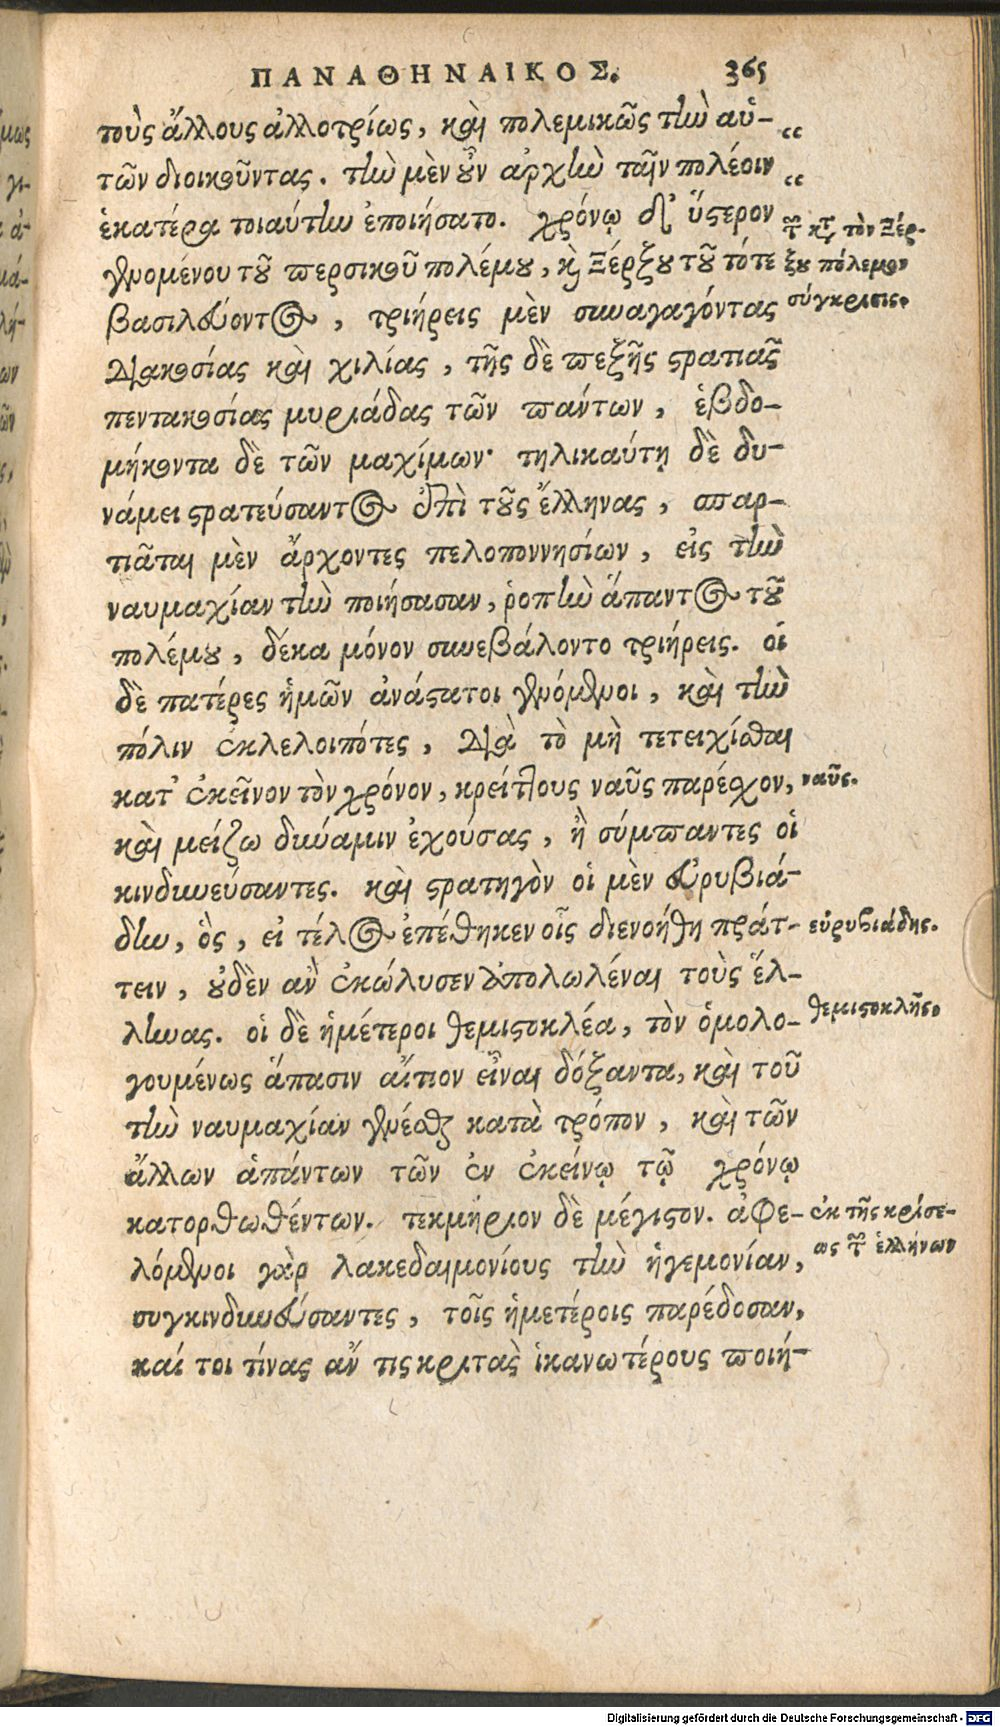 ΠΑΝΑΘΗΝΑΙΚΟΣ. 365
τοὺς ἄλλους ἀλλοτρίως, καὶ πολεμικῶς τὴν αὑ-
τῶν διοικοῦντας. τὴν μὲν οὖν ἀρχὴν ταῖν πολέοιν
ἑκατέρα τοιαύτην ἐποιήσατο. χρόνῳ δ' ὕστερον
γενομένου τοῦ περσικοῦ πολέμου, καὶ Ξέρξου τοῦ τότε
βασιλεύοντος, τριήρεις μὲν συναγαγόντας
διακοσίας καὶ χιλίας, τῆς δὲ πεζῆς στρατιᾶς
πεντακοσίας μυριάδας τῶν πάντων, ἑβδο-
μήκοντα δὲ τῶν μαχίμων· τηλικαύτῃ δὲ δυ-
νάμει στρατεύσαντος ἐπὶ τοὺς ἕλληνας, σπαρ-
τιᾶται μὲν ἄρχοντες πελοποννησίων, εἰς τὴν
ναυμαχίαν τὴν ποιήσασαν, ῥοπὴν ἅπαντος τοῦ
πολέμου, δέκα μόνον συνεβάλοντο τριήρεις. οἱ
δὲ πατέρες ἡμῶν ἀνάστατοι γενόμενοι, καὶ τὴν
πόλιν ἐκλελοιπότες, διὰ τὸ μὴ τετειχίσθαι
κατ' ἐκεῖνον τὸν χρόνον, κρείττους ναῦς παρέσχον,
καὶ μείζω δύναμιν ἐχούσας, ἢ σύμπαντες οἱ
κινδυνεύσαντες. καὶ στρατηγὸν οἱ μὲν εὐρυβιά-
δην, ὃς, εἰ τέλος ἐπέθηκεν οἷς διενοήθη πράτ-
τειν, οὐδὲν ἂν ἐκώλυσεν ἀπολωλέναι τοὺς ἕλ-
ληνας. οἱ δὲ ἡμέτεροι θεμιστοκλέα, τὸν ὁμολο-
γουμένως ἅπασιν αἴτιον εἶναι δόξαντα, καὶ τοῦ
τὴν ναυμαχίαν γενέσθαι κατὰ τρόπον, καὶ τῶν
ἄλλων ἁπάντων τῶν ἐν ἐκείνῳ τῷ χρόνῳ
κατορθωθέντων. τεκμήριον δὲ μέγιστον. ἀφε-
λόμενοι γὰρ λακεδαιμονίους τὴν ἡγεμονίαν,
συγκινδυνεύσαντες, τοῖς ἡμετέροις παρέδοσαν,
καί τοι τίνας ἄν τις κριτὰς ἱκανωτέρους ποιή-
τῶν κατὰ τὸν Ξέρ-
ξου πόλεμον
σύγκρισις.
ναῦς.
εὐρυβιάδης.
θεμιστοκλῆς.
ἐκ τῆς κρίσε-
ως τῶν ἑλλήνων
Digitalisierung gefördert durch die Deutsche Forschungsgemeinschaft - DFG